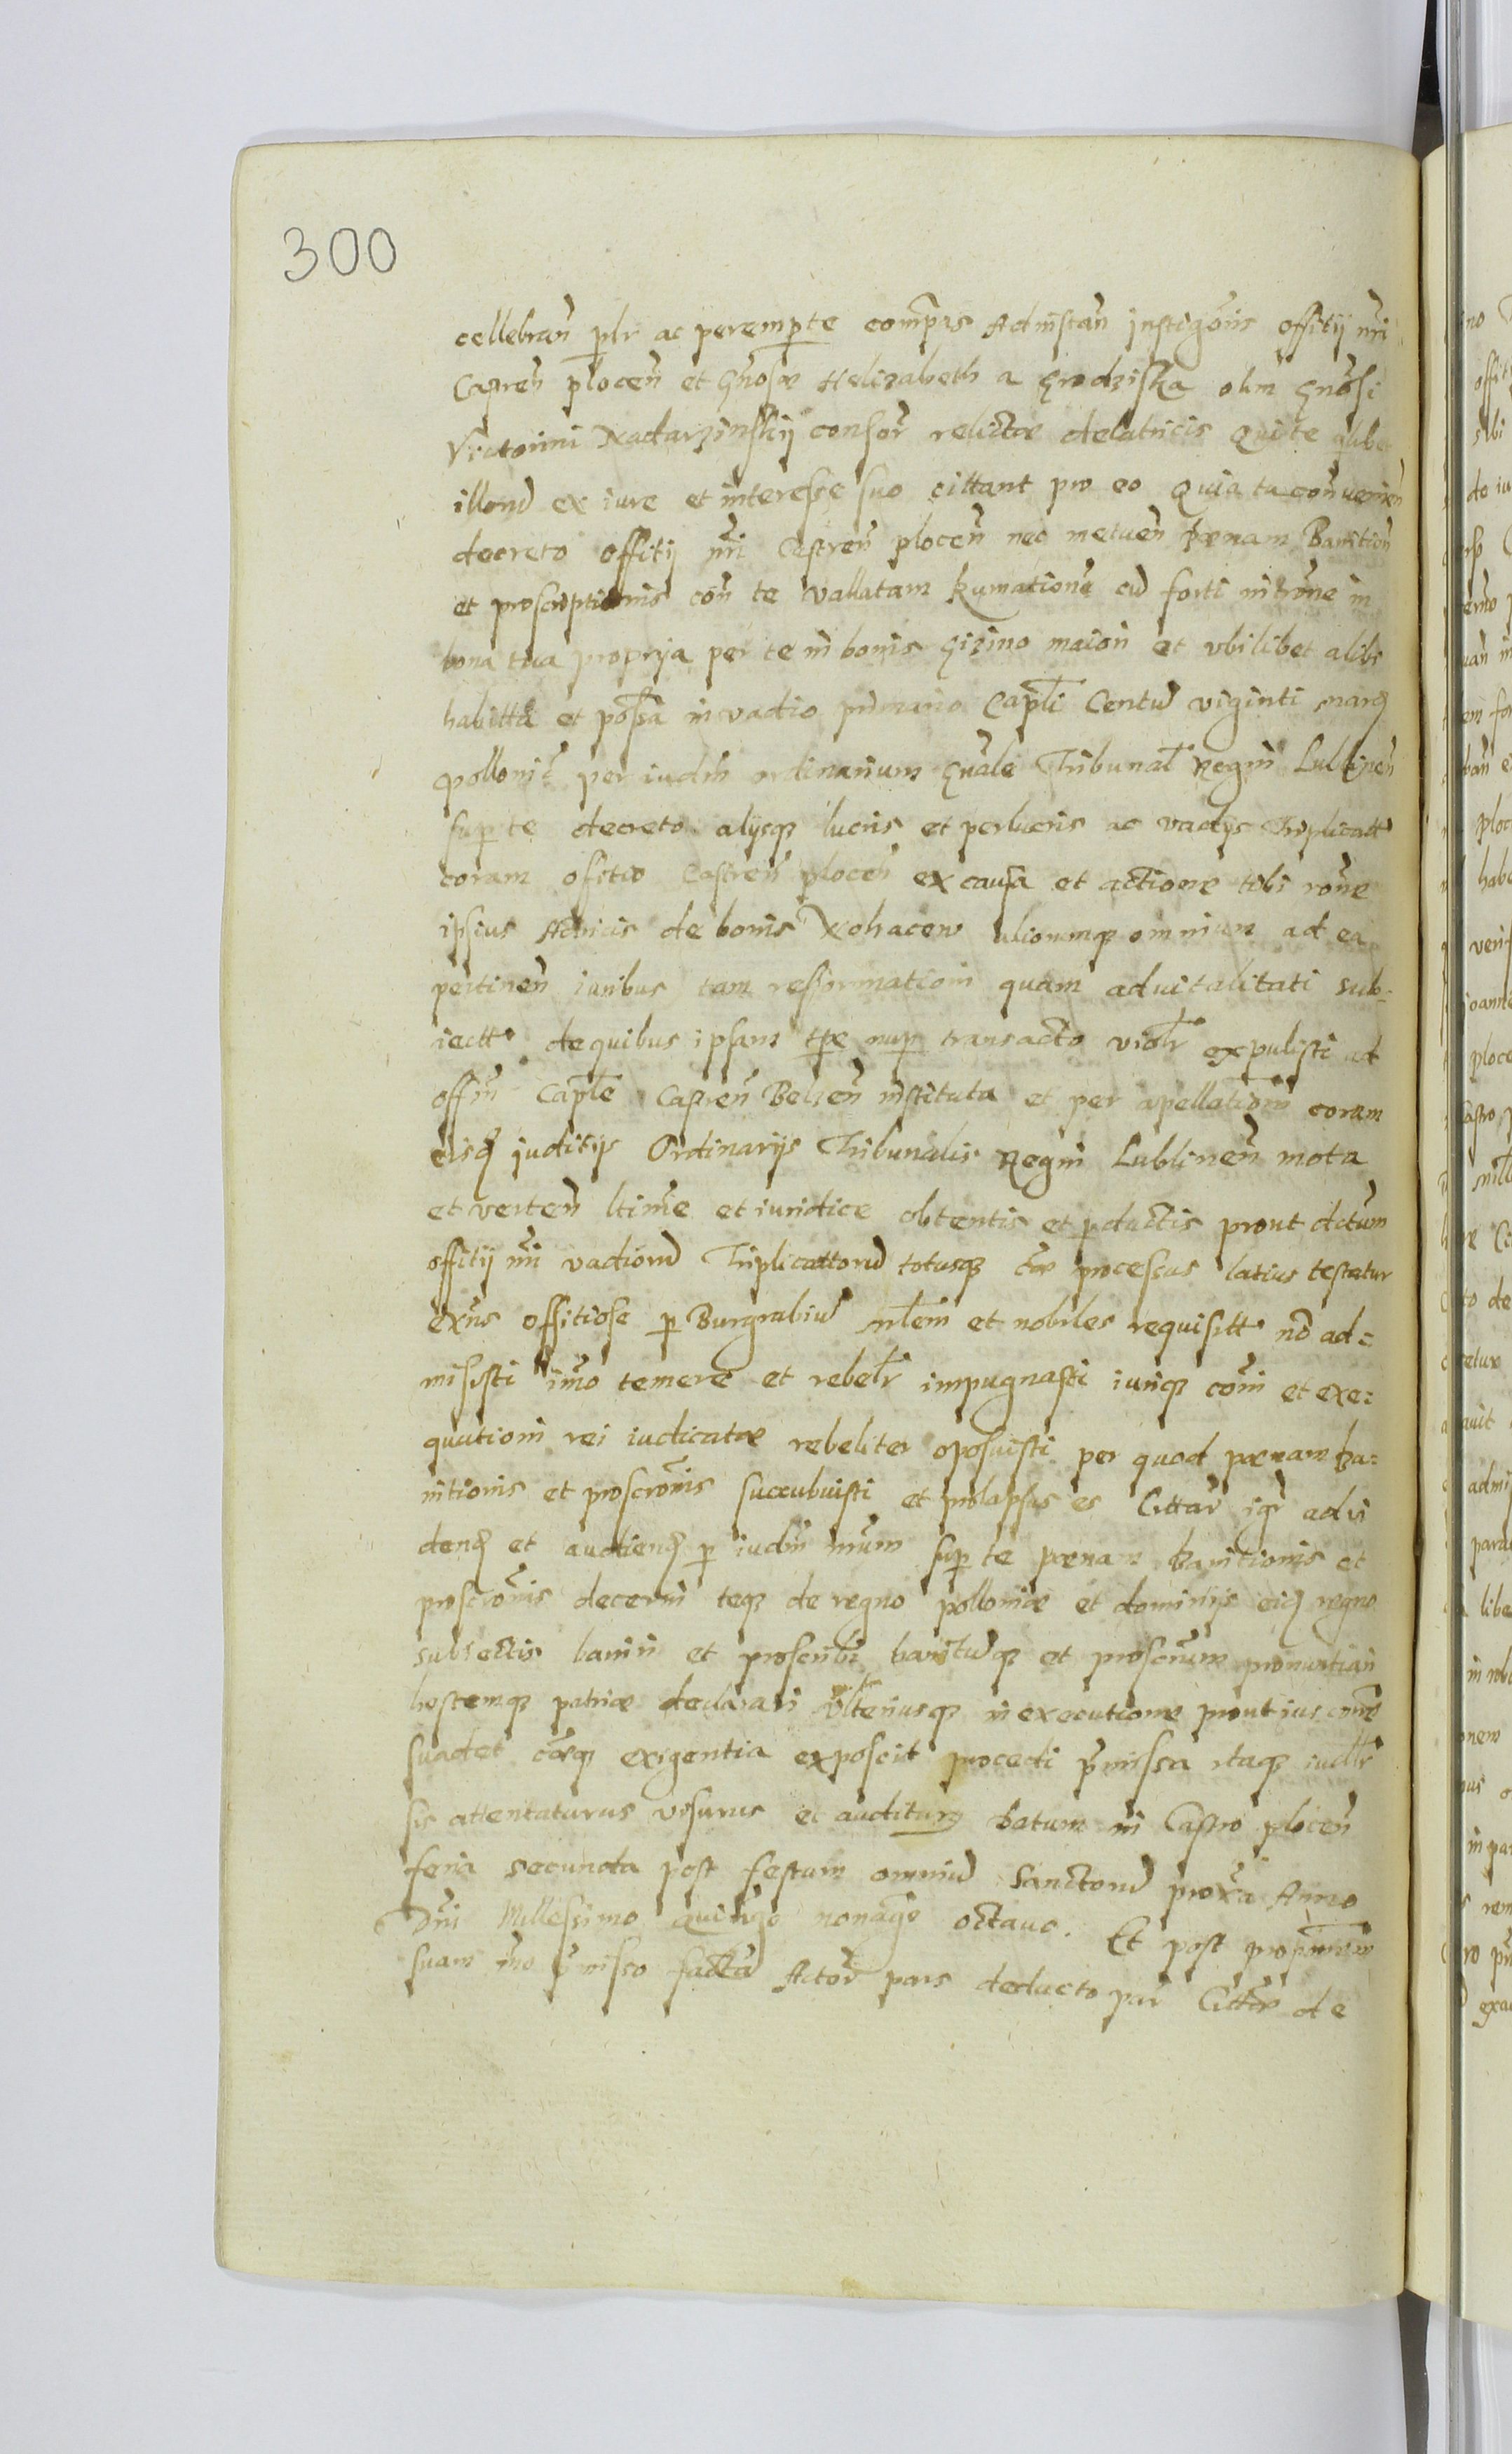 300
cellebrañ plr ac perempte compas Ad instan instigõris offitij nri
Castreñ plocen et Gñosæ Helizabeth a Grodziska olim Gñosi
Victorini Nadarzinskij consor relictæ delatricis Qui te
illorũ ex iure et interesse suo cittant pro eo Quia tu conveniẽn
decreto offitij nri Castreñ plocen nec metuen pœnam Banition
et proscriptionis con te vallatam Rumationẽ cũ forti intrõne in
bona tua proprija per te in bonis Gizino maiori et vbilibet alibi
habitta et possa in vadio primario Capli Centũ viginti marq
pollonic per iudm ordinarium Gñale Tribunal Regni Lublinen
super te decreto alijsq lucris et perlucris ac vadijs Triplicatt
coram ofitio Castreñ plocen ex causa et actione tibi rõne
ipsius Actricis de bonis aliorumq omnium ad ea
pertinen iuribus tam reformationi quam advitalitati sub-
iectt de quibus ipsam tpe nup transacto violr expulisti ad
offm Caple Castreñ Belzen instituta et per apellationem coram
eisq juditijs Ordinarijs Tribunalis Regni Lublinen mota
et verten ltime et iuridice obtentis et pductis prout dctum
offitij nri vadiorũ Triplicattorũ totusq cæ processus latius testatur
exns offitiose p Burgrabiũ mlem et nobiles requisitt nõ ad=
misisti imo temere et rebelr impugnasti iuriq cõm et exe=
qutioni rei iudicatæ rebeliter oposuisti per quod pœnam ba=
nitionis et proscrõnis sucubuisti et prolapsus es Cittar igr ad vi
denq et audienq p iudm nrum sup te pœnam banitionis et
proscrõnis decerni teq de regno polloniæ et dominijs eiq regno
subiectis baniri et proscribi banitũq et proscrũm pronuntiari
hostemq patriæ declarari vlteriusq in executione prout ius cõne
suadet cæq exigentia exposcit procedi pmissa itaq iudlr
sis attentaturus visurus et auditurq Datum in Castro plocen
feria secunda post festum omniũ Sanctorũ proxa Anno
Dni Millessimo quingo nonago octavo. Et post propõnem
suam ĩno pmisso factã Actor pars deducto par Cittæ de